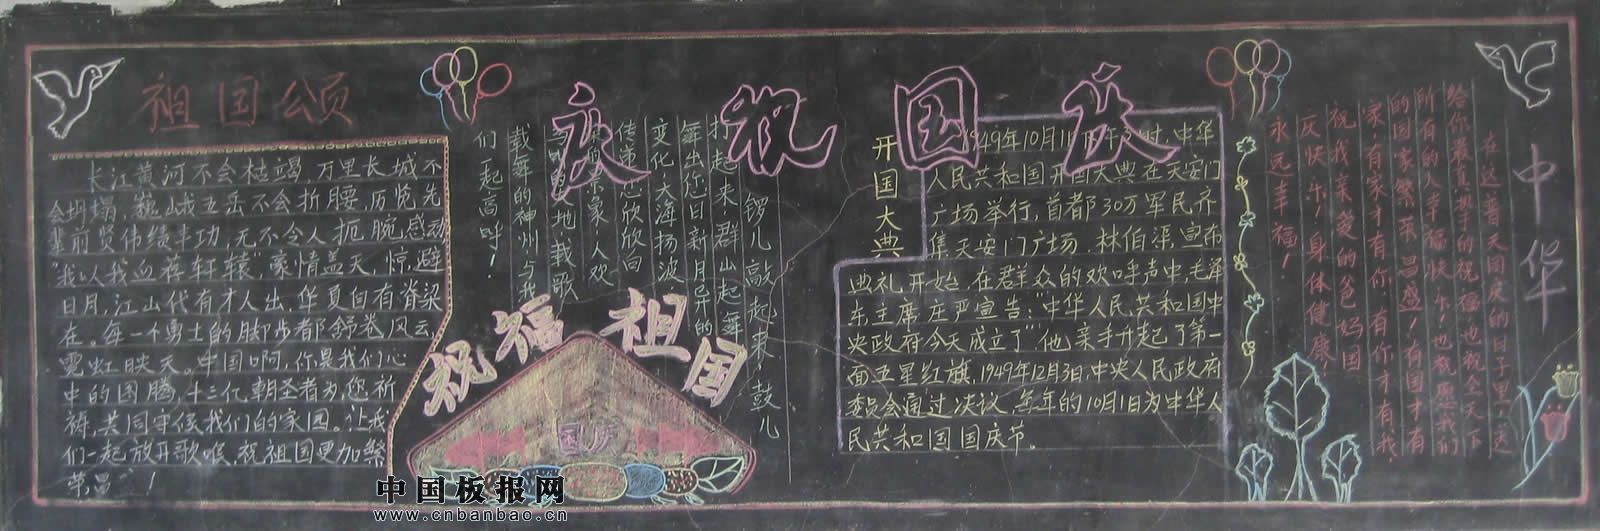 祖国颂
长江黄河不会枯竭,万里长城不
会坍塌,巍峨五岳不会折腰,历览先
辈前贤伟绩丰功,无不令人扼腕感动
“我以我血荐轩辕”,豪情盖天,惊避
日月,江山代有才人出,华夏自有脊梁
在。每一个勇士的脚步都舒卷风云,
霓虹映天。中国啊,你是我们心
中的图腾,十三亿朝圣者为您祈
祷,共同守候我们的家园。让我
们一起放开歌喉,祝祖国更加繁
荣,昌!
庆祝国庆
锣儿敲起来,鼓儿
打起来,群山起舞
舞出您日新月异的
变化,大海扬波
传递您欣欣向
荣的景象,人欢
载舞的神州与我
们一起高呼!
祝福祖国
国庆
开国大典
1949年10月1日下午3时,中华
人民共和国开国大典在天安门
广场举行,首都30万军民齐
集天安门广场,林伯渠,宣布
典礼开始,在群众的欢呼声中,毛泽
东主席庄严宣告:“中华人民共和国中
央政府今天成立了”他亲手升起了第一
面五星红旗,1949年12月3日,中央人民政府
委员会通过决议,每年的10月1日为中华人
民共和国国庆节。
中华
在这普天同庆的日子里,送
给你最真挚的祝福,也祝全天下
所有的人幸福快乐!也祝愿我们
的国家繁荣昌盛!有国才有
家,有家才有你,有你才有我,
祝我亲爱的爸妈国
庆快乐!身体健康!
永远幸福!
中国板报网
www.cnbanbao.cn